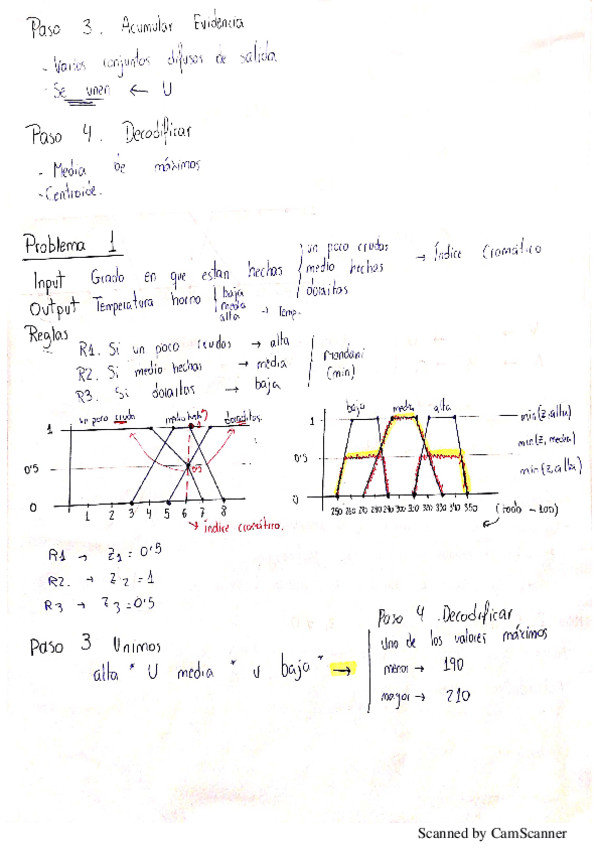 Paso 3. Acumular Evidencia
- Varios conjuntos difusos de salida.
- Se unen ← U
Paso 4. Decodificar
- Media de máximos
- Centroide.
Problema 1
Input Grado en que estan hechas un poco crudas → Índice Cromático
medio hechas
doraitas
Output Temperatura horno baja
media → Temp.
alta
Reglas
R1. Si un poco crudas → alta
R2. Si medio hechas → media
R3. Si doraitas → baja
Mandani
(min)
un poco cruda medio hech doraditas
1
0'5
0'5
0
1 2 3 4 5 6 7 8
→ índice cromático.
baja media alta
1
0'5
0
min(z,alta)
min(z, media)
min(z,alta)
R1 → Z1 = 0'5
R2. → Z2 = 1
R3 → Z3 = 0'5
Paso 3 Unimos
alta * U media * U baja * →
Paso 4 Decodificar
Uno de los valores máximos
menor → 190
mayor → 210
Scanned by CamScanner